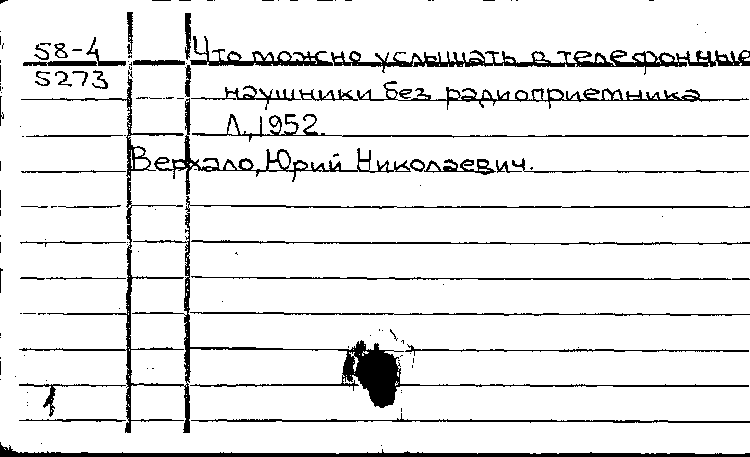 58-4 Что можно услышать в телефонные
5273 наушники без радиоприемника
Л., 1952.
Верхало, Юрий Николаевич.
1